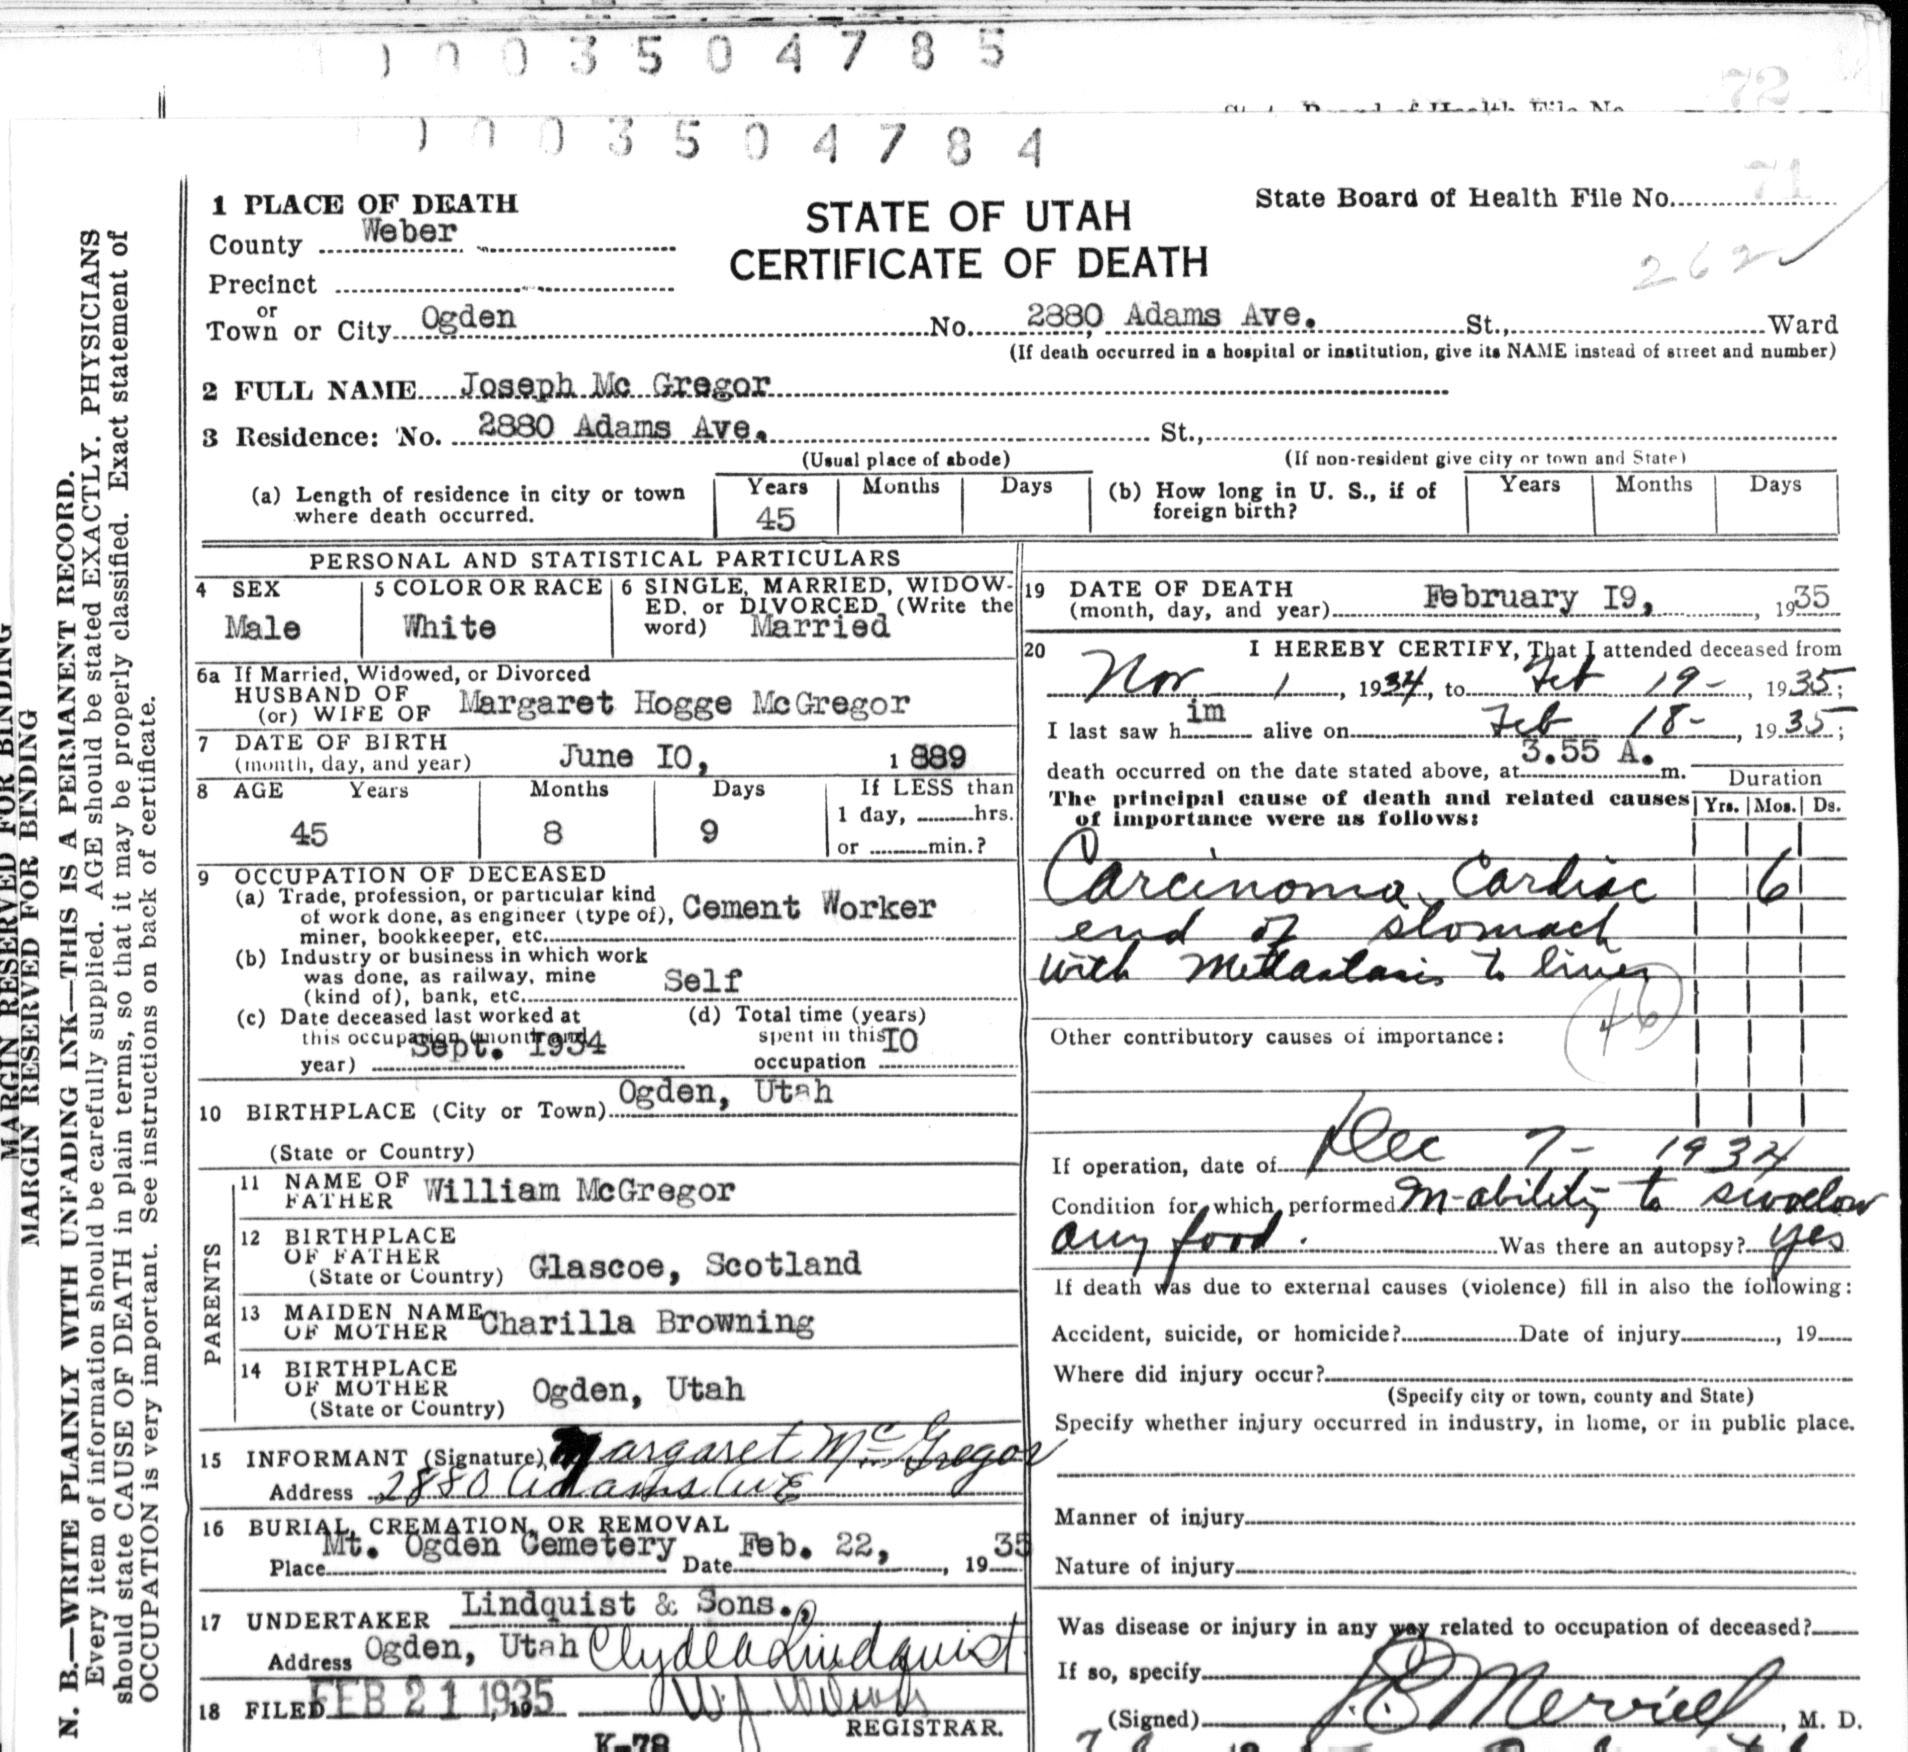 0 0 3 5 0 4 7 8 5
72
State Board of Health File No.
0 0 3 5 0 4 7 8 4
71
1 PLACE OF DEATH
STATE OF UTAH
CERTIFICATE OF DEATH
State Board of Health File No.
262
County Weber
Precinct
or
Town or City Ogden No. 2880 Adams Ave. St., Ward
(If death occurred in a hospital or institution, give its NAME instead of street and number)
2 FULL NAME Joseph Mc Gregor
3 Residence: No. 2880 Adams Ave. St.,
(Usual place of abode) (If non-resident give city or town and State)
(a) Length of residence in city or town where death occurred. Years 45 Months Days
(b) How long in U. S., if of foreign birth? Years Months Days
PERSONAL AND STATISTICAL PARTICULARS
4 SEX Male
5 COLOR OR RACE White
6 SINGLE, MARRIED, WIDOW-
ED, or DIVORCED (Write the
word) Married
6a If Married, Widowed, or Divorced
HUSBAND OF
(or) WIFE OF Margaret Hogge McGregor
7 DATE OF BIRTH
(month, day, and year) June I0, 1 889
8 AGE Years Months Days If LESS than
1 day, hrs.
45 8 9
or min.?
9 OCCUPATION OF DECEASED
(a) Trade, profession, or particular kind
of work done, as engineer (type of), Cement Worker
miner, bookkeeper, etc.
(b) Industry or business in which work
was done, as railway, mine Self
(kind of), bank, etc.
(c) Date deceased last worked at
this occupation (month and
year) Sept. I934
(d) Total time (years)
spent in this I0
occupation
10 BIRTHPLACE (City or Town) Ogden, Utah
(State or Country)
PARENTS
11 NAME OF
FATHER William McGregor
12 BIRTHPLACE
OF FATHER
(State or Country) Glascoe, Scotland
13 MAIDEN NAME
OF MOTHER Charilla Browning
14 BIRTHPLACE
OF MOTHER
(State or Country) Ogden, Utah
15 INFORMANT (Signature) Margaret McGregor
Address 2880 Adams Ave
16 BURIAL, CREMATION, OR REMOVAL
Place Mt. Ogden Cemetery Date Feb. 22, 19 35
17 UNDERTAKER Lindquist & Sons.,
Address Ogden, Utah Clyde A Lindquist
18 FILED FEB 21 1935, 19
REGISTRAR.
K-78
19 DATE OF DEATH
(month, day, and year) February I9, 1935
20 I HEREBY CERTIFY, That I attended deceased from
Nov 1, 1934, to Feb 19-, 1935;
I last saw him alive on Feb 18-, 1935;
death occurred on the date stated above, at 3.55 A. m.
Duration
The principal cause of death and related causes
of importance were as follows:
Yrs. Mos. Ds.
Carcinoma Cardiac 6
end of stomach
with Mettastasis to liver
46
Other contributory causes of importance:
If operation, date of Dec 7- 1934
Condition for which performed In-ability to swollow
any food. Was there an autopsy? yes
If death was due to external causes (violence) fill in also the following:
Accident, suicide, or homicide? Date of injury, 19
Where did injury occur?
(Specify city or town, county and State)
Specify whether injury occurred in industry, in home, or in public place.
Manner of injury
Nature of injury
Was disease or injury in any way related to occupation of deceased?
If so, specify
(Signed) Merrill, M. D.
MARGIN RESERVED FOR BINDING
MARGIN RESERVED FOR BINDING
N. B.—WRITE PLAINLY WITH UNFADING INK—THIS IS A PERMANENT RECORD.
Every item of information should be carefully supplied. AGE should be stated EXACTLY. PHYSICIANS
should state CAUSE OF DEATH in plain terms, so that it may be properly classified. Exact statement of
OCCUPATION is very important. See instructions on back of certificate.